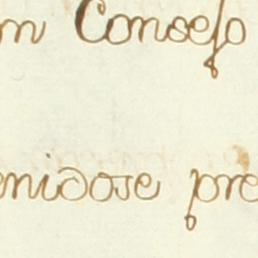 m Consejo
enidose pre